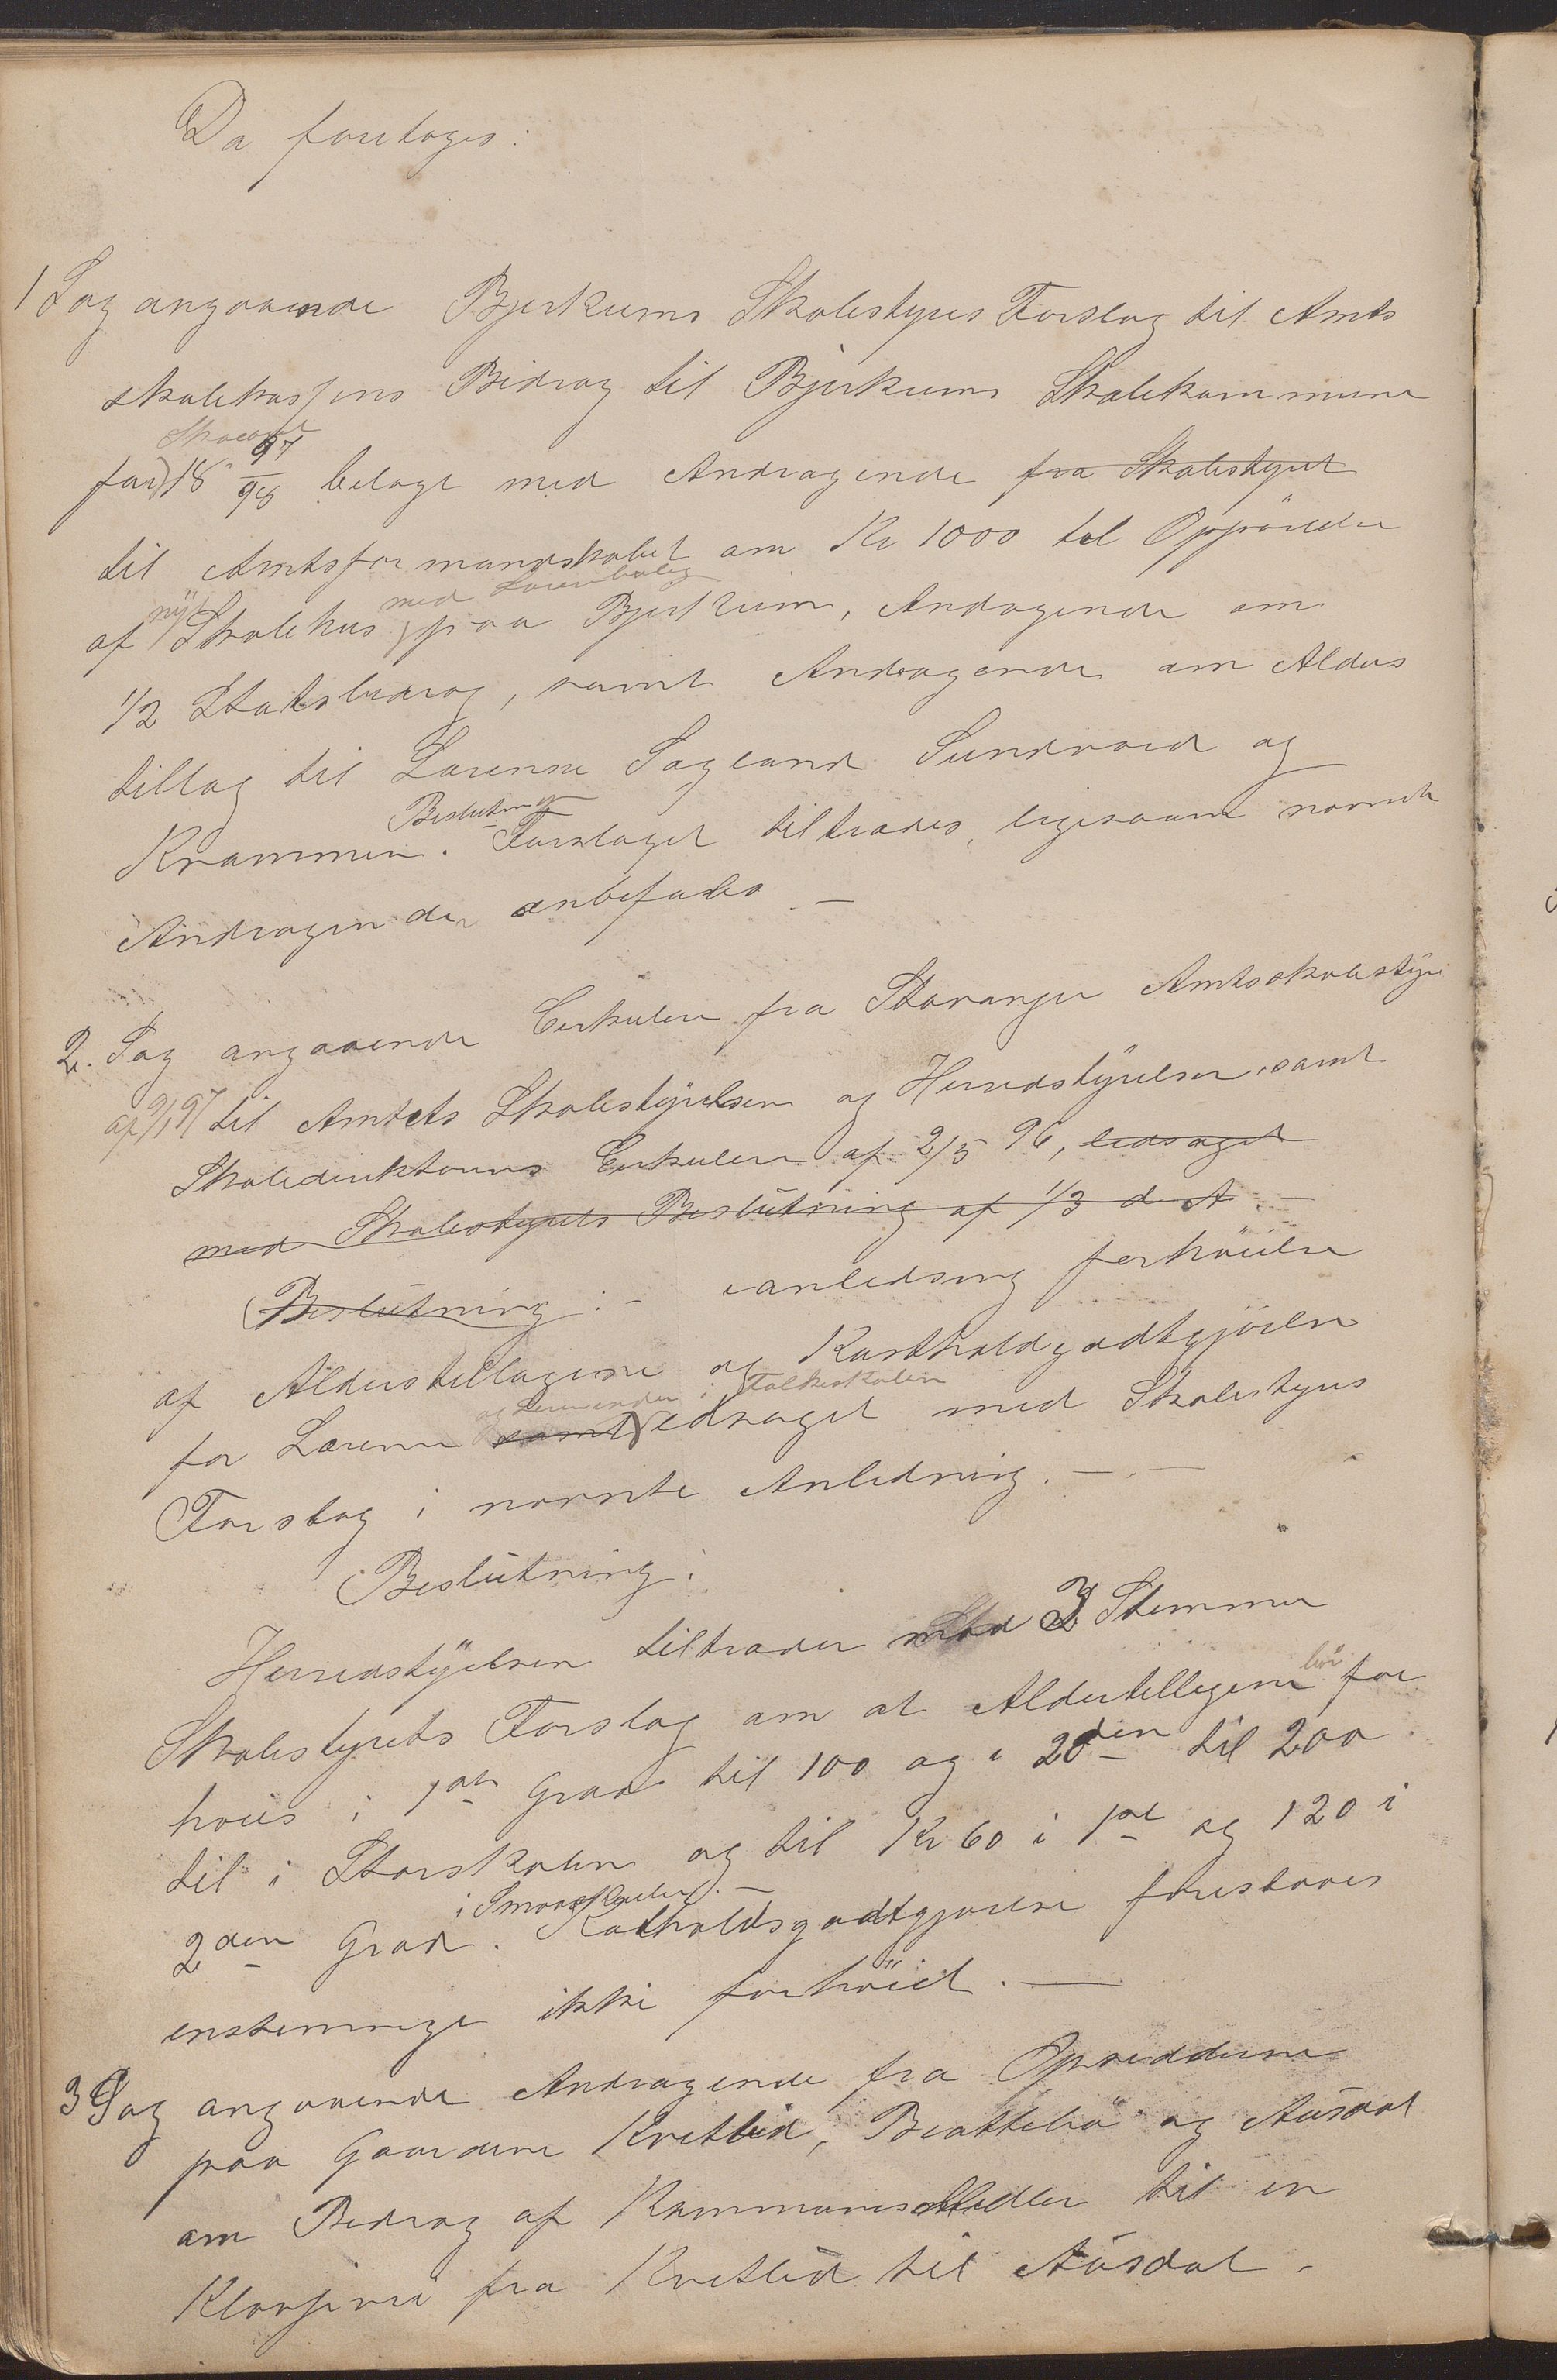 Da foretoges:
1 Sag angaaende Bjerkreims Skolestyres Forslag til Amts
skolekassens Bidrag til Bjerkreims Skolekommune
Skoleaaret
for 18 97/98 belagt med Andragende fra Skolestyret
til Amtsformandskabet om Kr 1000 til Opförelse
nyt med Lærerbolig
af Skolehus paa Bjerkreim, Andragende om
1/2 Statsbidrag, samt Andragende om Alders
tillæg til Lærerne Sagland Sundvord og
Beslutning
Krammen. Forslaget tiltrædes, ligesaam nævnte
Andragender anbefales. —
2. Sag angaaende Cirkulære fra Stavanger Amtsskolestyre
af 9/1 97 til Amtets Skolestyrelser og Herredstyrelser, samt
Skoledirektörens Cirkulære af 2/5 96, ledsaget
med Skolestyrets Beslutning af 1/3 d. A. —
Beslutning: - ianledning forhöielse
af Alderstillægene og Kostholdgodtgjörelse
og Lærerinder i Folkeskolen
for Lærerne samt ledsaget med Skolestyrets
Forslag i nævnte Anledning. —.—
Beslutning:
Herredstyrelsen tiltræder mod 3 Stemmer
Skolestyrets Forslag om at Alderstillægene bör for
höies i 1ste Grad til 100 og i 2den til 200
til i Storskolen og til Kr 60 i 1ste og 120 i
i Smaaskolen. —
2den Grad. Kostholdsgodtgjörelse foreslaaes
enstemmige ikke forhöiet. —
3 Sag angaaende Andragende fra Opsidderne
paa Gaardene Kvitleid, Brattebö og Ausdal
om Bidrag af Kommunesmidler til en
Klopvei fra Kvitleid til Ausdal -